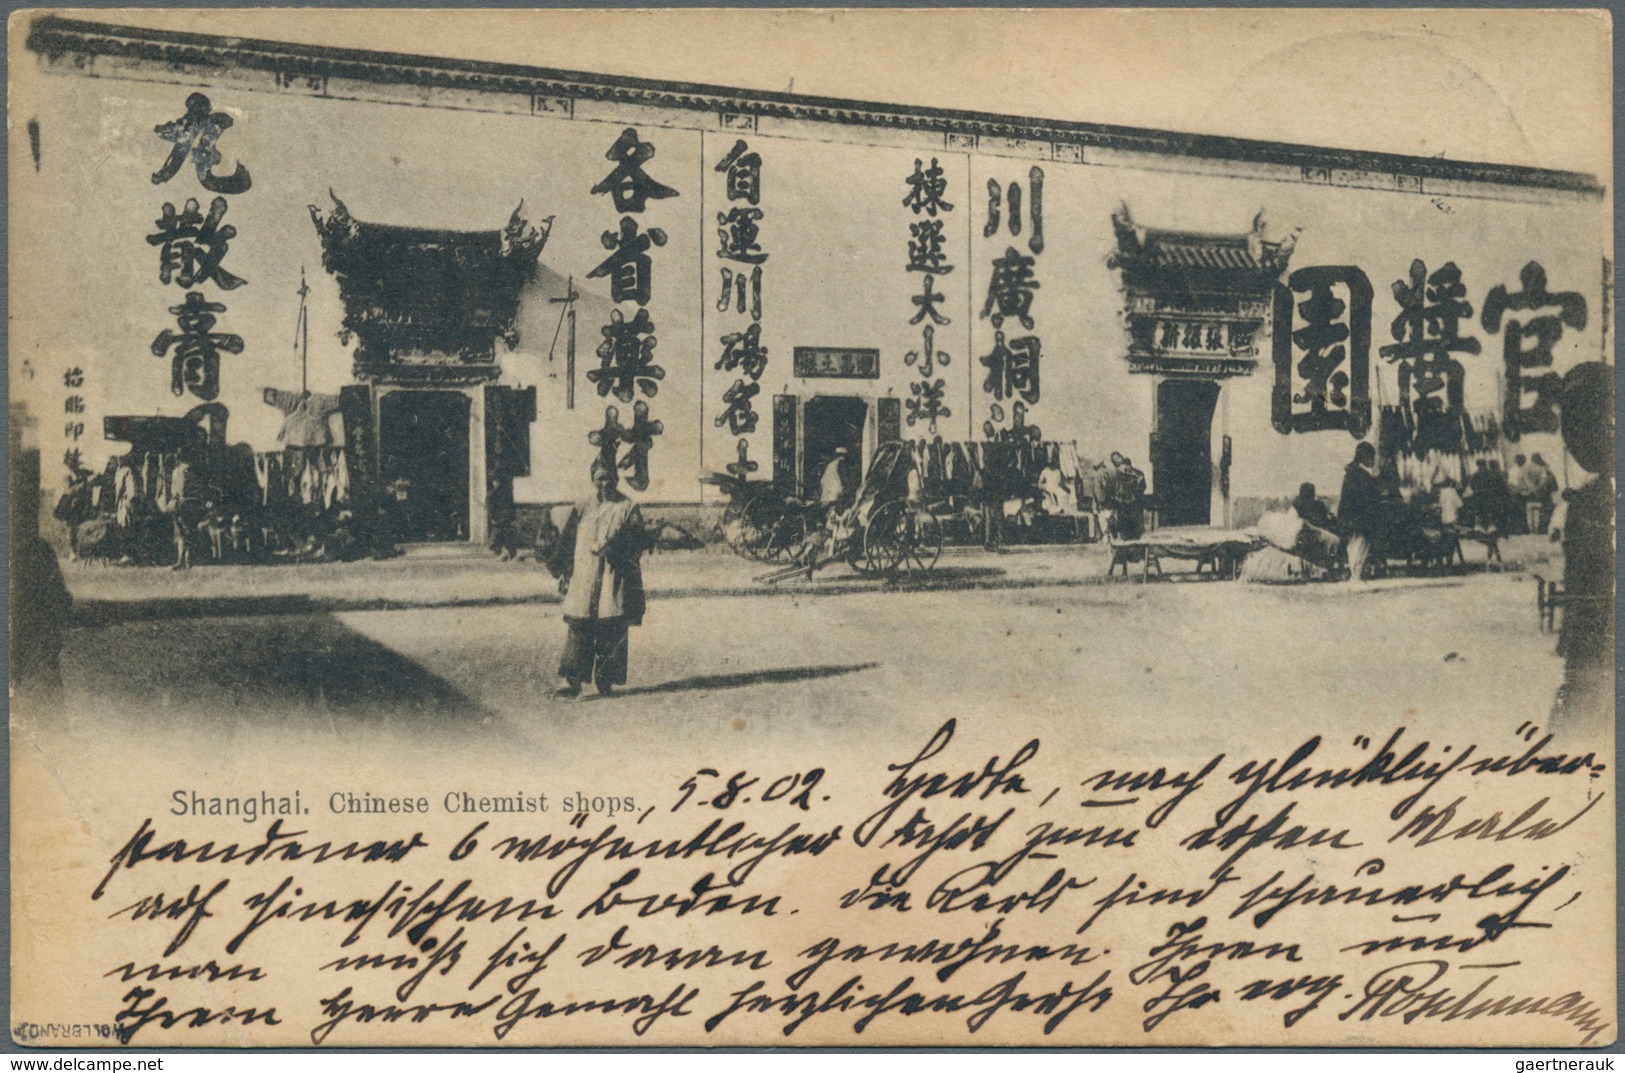 丸散膏
各省藥材
自運川碭名
揀選大小洋
川廣桐油
園醬官
Shanghai. Chinese Chemist shops., 5.8.02. Heute, nach glücklich über-
standener 6 wöchentlicher Fahrt zum ersten Male
auf chinesischem Boden. Die Kerls sind schauerlich,
man muß sich daran gewöhnen. Ihnen und
Ihrem Herrn Gemahl herzlichen Gruß Ihr erg. Poschmann
WOLLBRANDT
www.delcampe.net
gaertnerauk